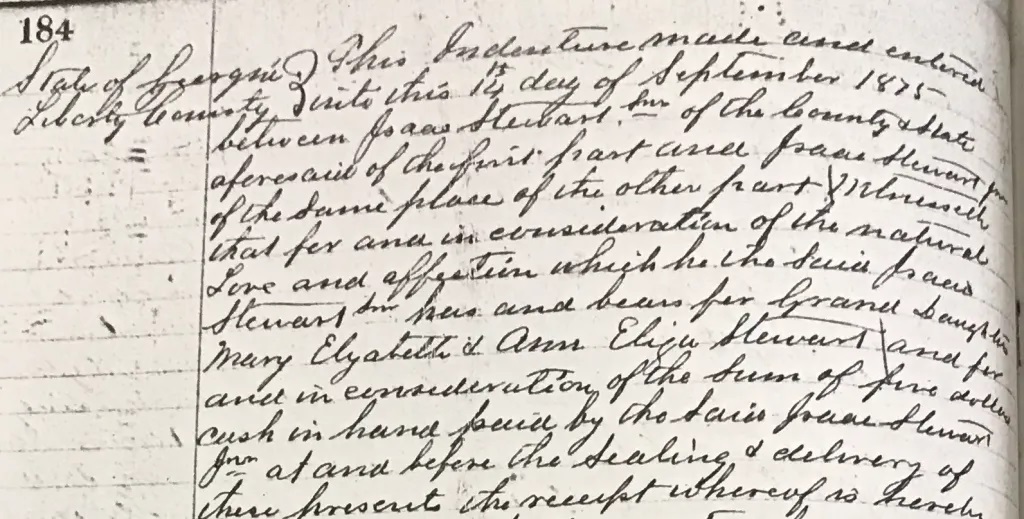 184
State of Georgia
Liberty County
This Indenture made and entered
into this 14th day of September 1875
between Isaac Stewart Snr of the County & State
aforesaid of the first part and Isaac Stewart Jnr
of the Same place of the other part Witnesseth
that for and in consideration of the natural
Love and affection which he the Said Isaac
Stewart Snr has and bears for Grand Daughters
Mary Elyabeth & Ann Eliza Stewart and for
and in consideration of the Sum of five dollars
cash in hand paid by the Said Isaac Stewart
Jnr at and before the Sealing & delivery of
these presents the receipt whereof is hereby